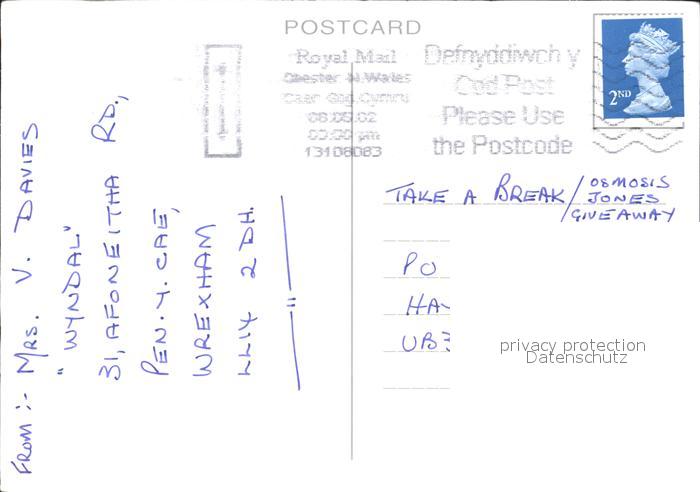 POSTCARD
Royal Mail
Chester N.Wales
Caer Gog.Cymru
03:00 pm
13108083
Defnyddiwch y
Cod Post
Please Use
the Postcode
2ND
FROM :- MRS. V. DAVIES
"WYNDAL"
31, AFONEITHA RD.,
PEN.Y.CAE,
WREXHAM
LL14 2DH.
TAKE A BREAK/OSMOSIS
JONES
GIVEAWAY
PO
HA
UB3
privacy protection
Datenschutz